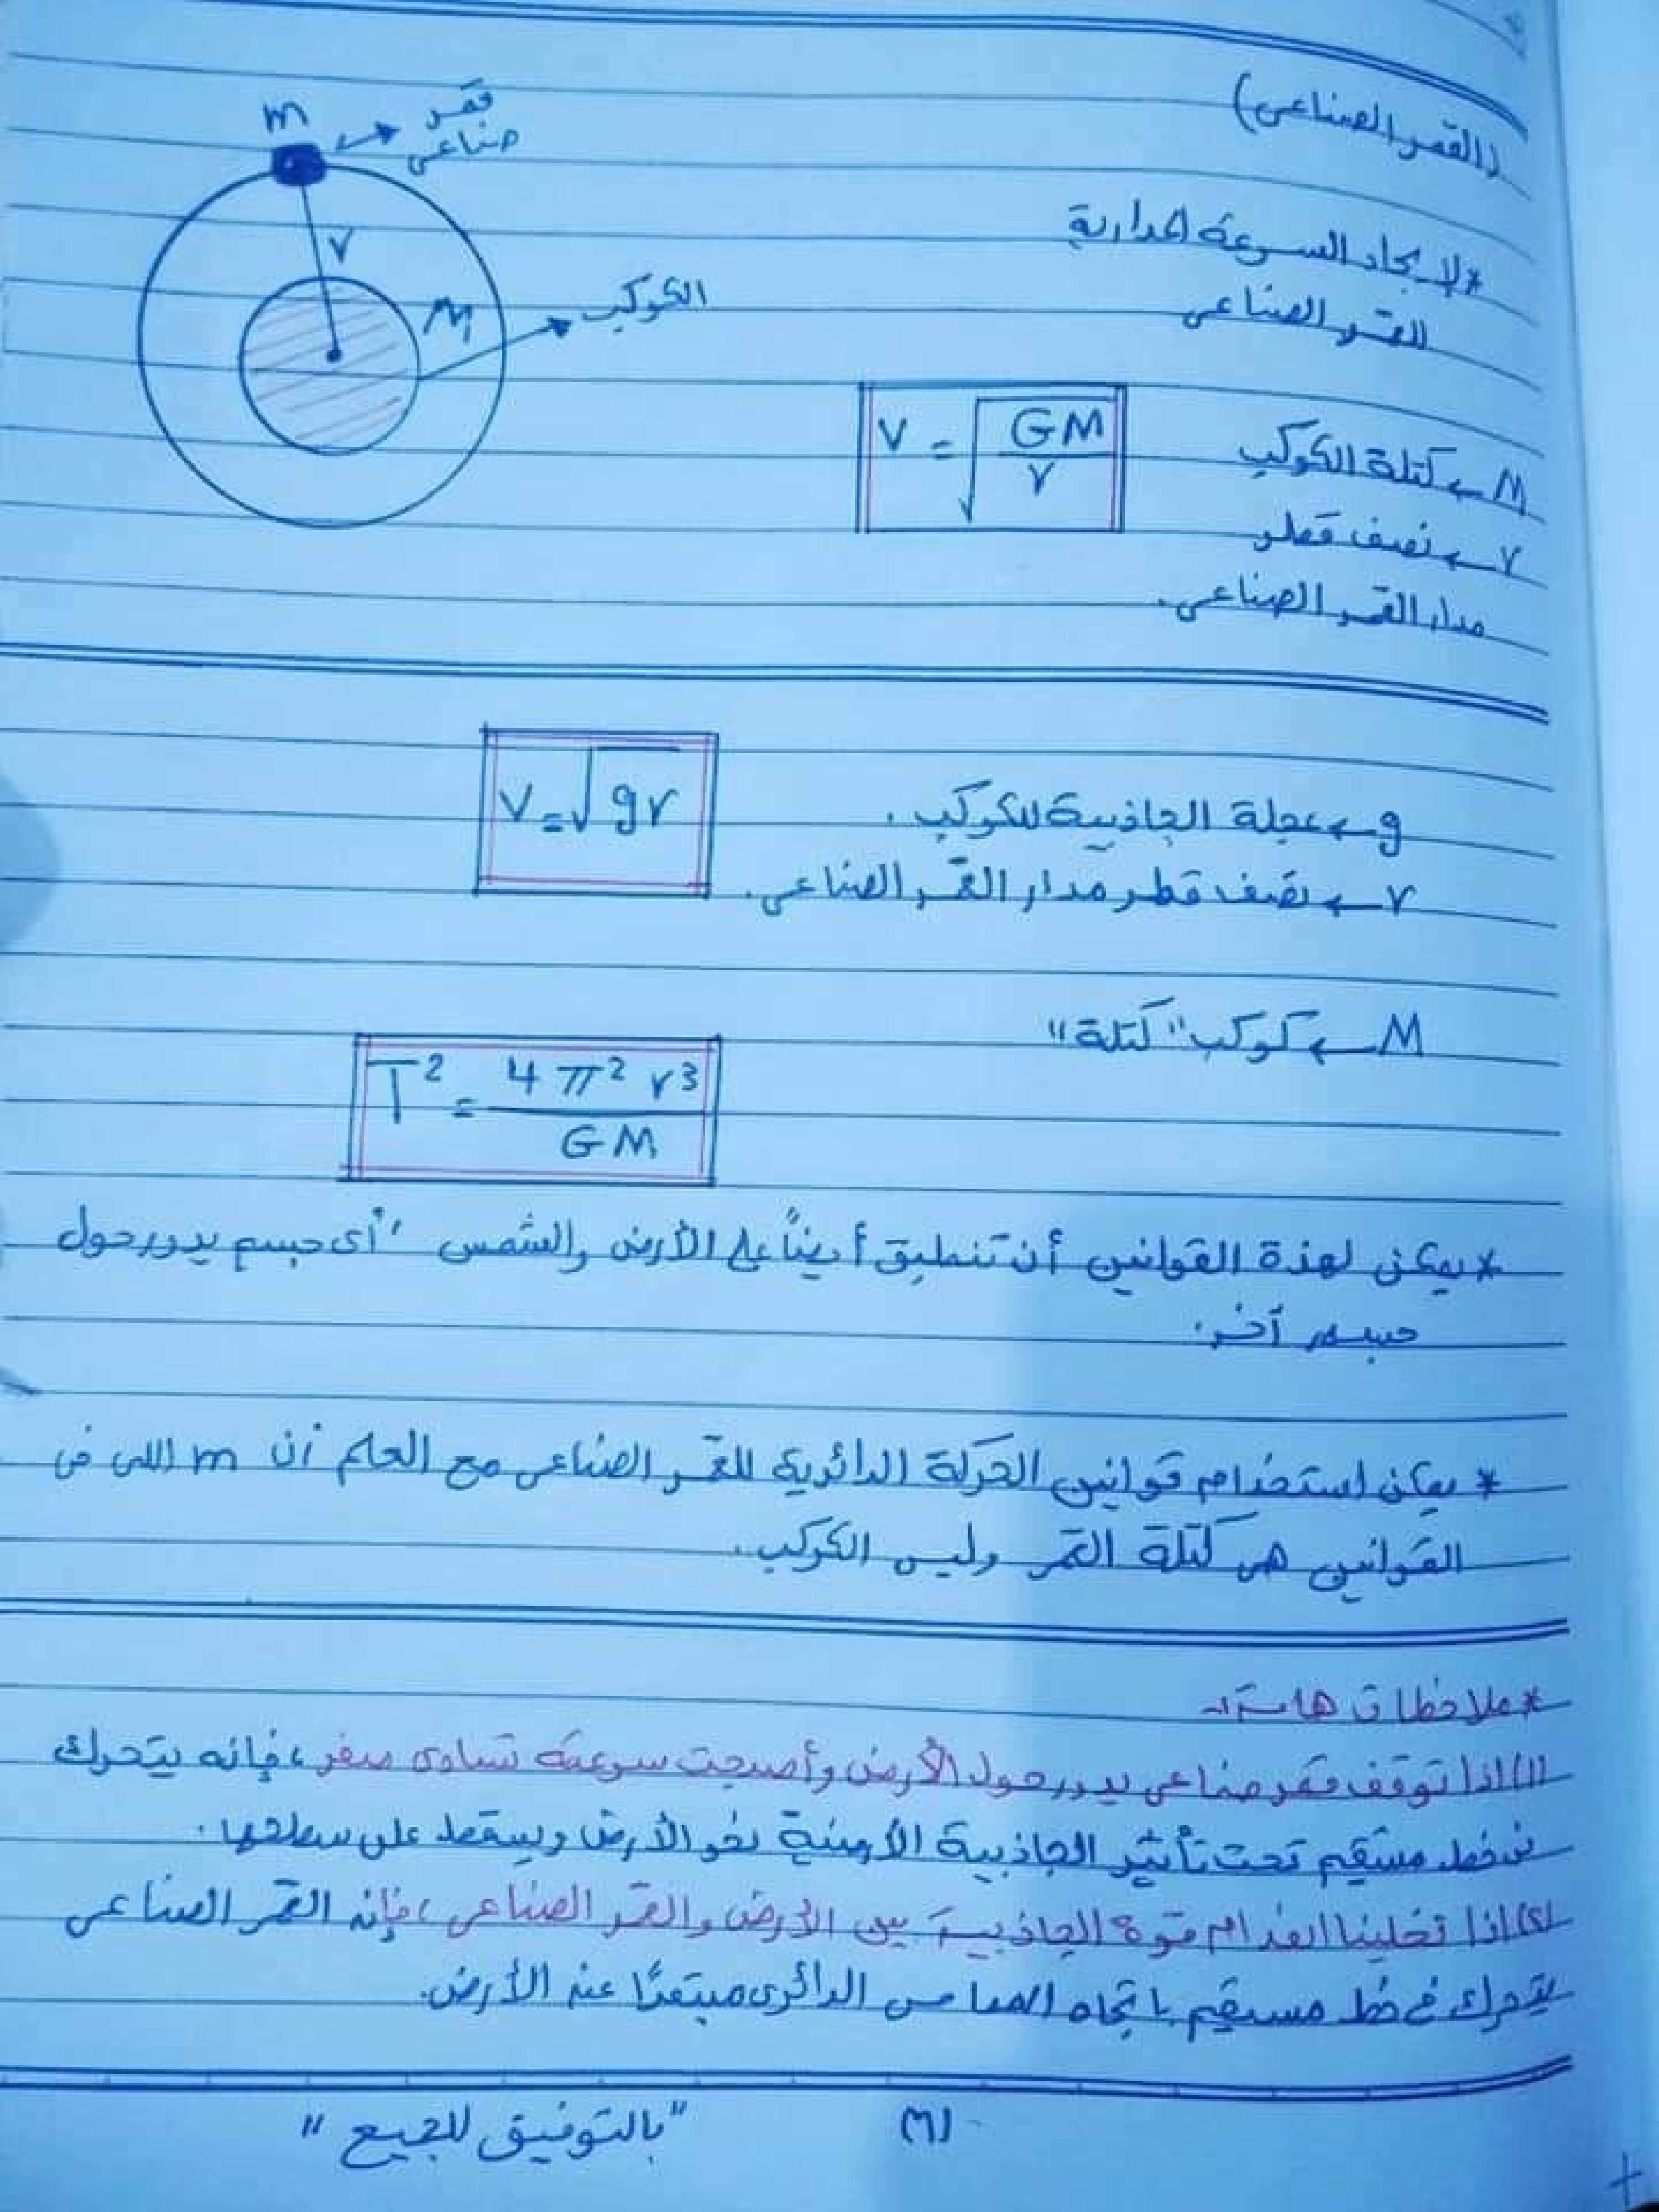 (القمر الصناعى)
m
قمر
صناعى
r
M
الكوكب
* لإيجاد السرعة المدارية
القمر الصناعى
V = √(GM / r)
M ← كتلة الكوكب
r ← نصف قطر
مدار القمر الصناعى.
V = √gr
g ← عجلة الجاذبية للكوكب.
r ← نصف قطر مدار القمر الصناعى.
M ← كوكب "كتلة"
T² = 4π² r³ / GM
* يمكن لهذة القوانين أن تنطبق أيضاً على الأرض والشمس ، أى جسم يدور حول
جسم آخر.
* يمكن استخدام قوانين الحركة الدائرية للقمر الصناعى مع العلم أن m اللى فى
القوانين هى كتلة القمر وليس الكوكب.
* ملاحظات هامة :-
(١) اذا توقف قمر صناعى يدور حول الأرض وأصبحت سرعته تساوى صفر ، فإنه يتحرك
فى خط مستقيم تحت تأثير الجاذبية الأرضية نحو الأرض ويسقط على سطحها.
(٢) اذا تخلينا انعدام قوة الجاذبية بين الأرض والقمر الصناعى ، فإنه القمر الصناعى
يتحرك فى خط مستقيم باتجاه المماس الدائرى مبتعدًا عند الأرض.
(٦)
"بالتوفيق للجميع"